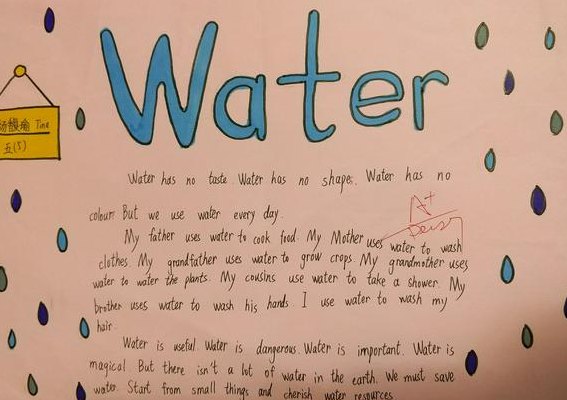 Water
Tina
五(5)
Water has no taste. Water has no shape. Water has no
colour. But we use water every day.
A+
Daisy
My father uses water to cook food. My Mother uses water to wash
clothes. My grandfather uses water to grow crops. My grandmother uses
water to water the plants. My cousins use water to take a shower. My
brother uses water to wash his hands. I use water to wash my
hair.
Water is useful. Water is dangerous. Water is important. Water is
magical. But there isn't a lot of water in the earth. We must save
water. Start from small things and cherish water resources